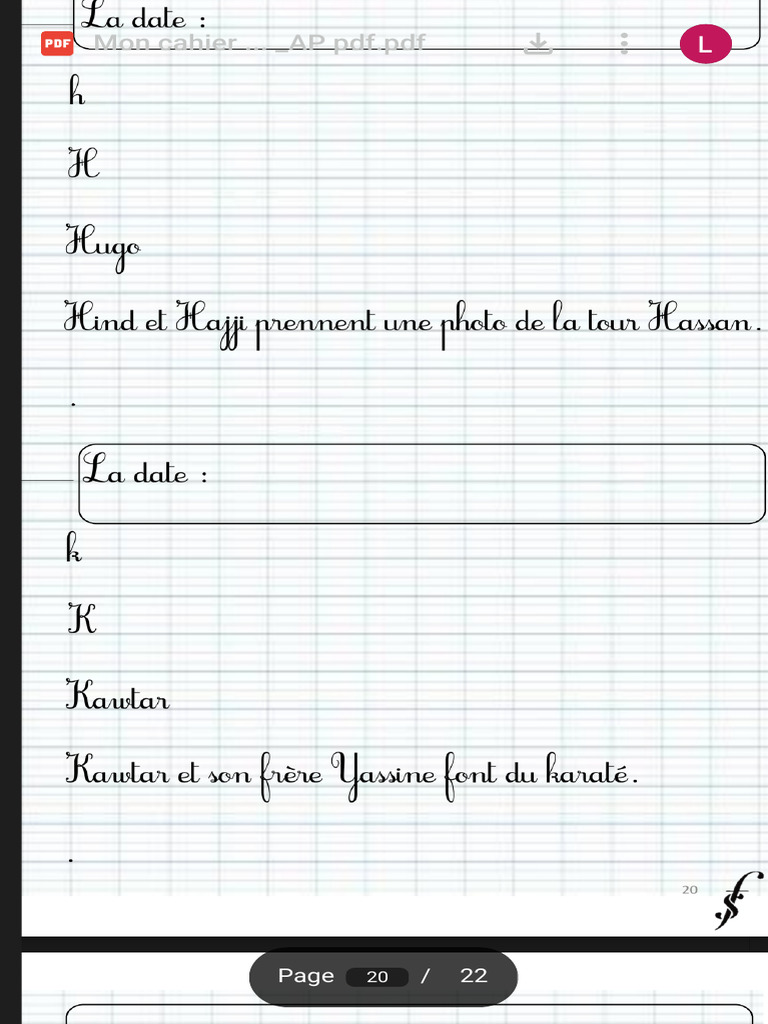 La date :
PDF Mon cahier ... _AP pdf.pdf L
h
H
Hugo
Hind et Hajji prennent une photo de la tour Hassan.
.
La date :
k
K
Kawtar
Kawtar et son frère Yassine font du karaté.
.
20
Page 20 / 22